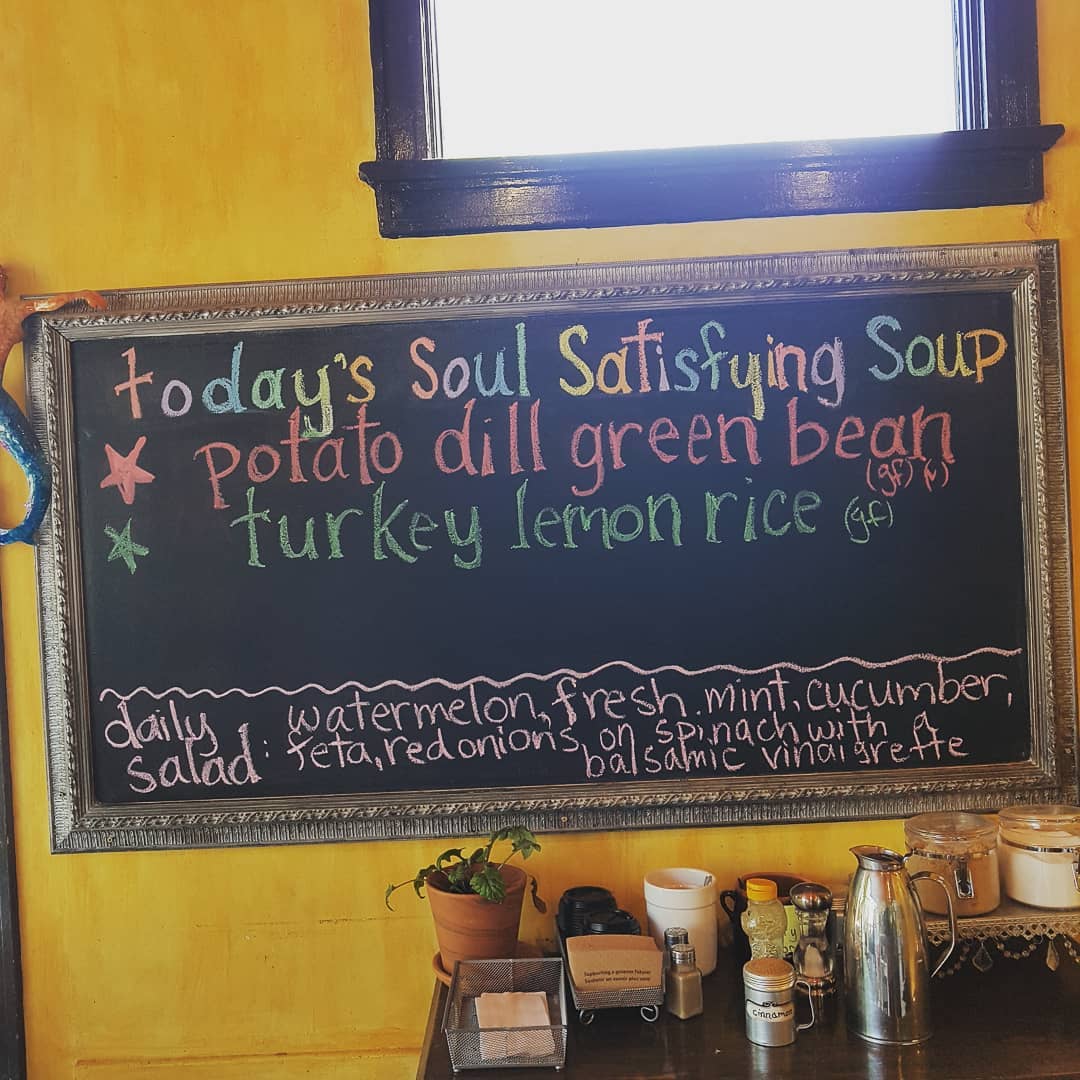 today's Soul Satisfying Soup
potato dill green bean
(gf) (v)
turkey lemon rice (g.f)
daily salad: watermelon, fresh mint, cucumber,
feta, red onions on spinach with a
balsamic vinaigrette
Supporting a greener future
cinnamon